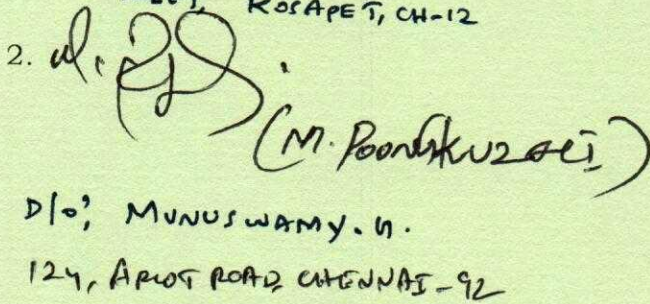 KOSAPET, CH-12
2.
(M. POONGKUZALI)
D/o; MUNUSWAMY. G.
124, ARCOT ROAD, CHENNAI-92